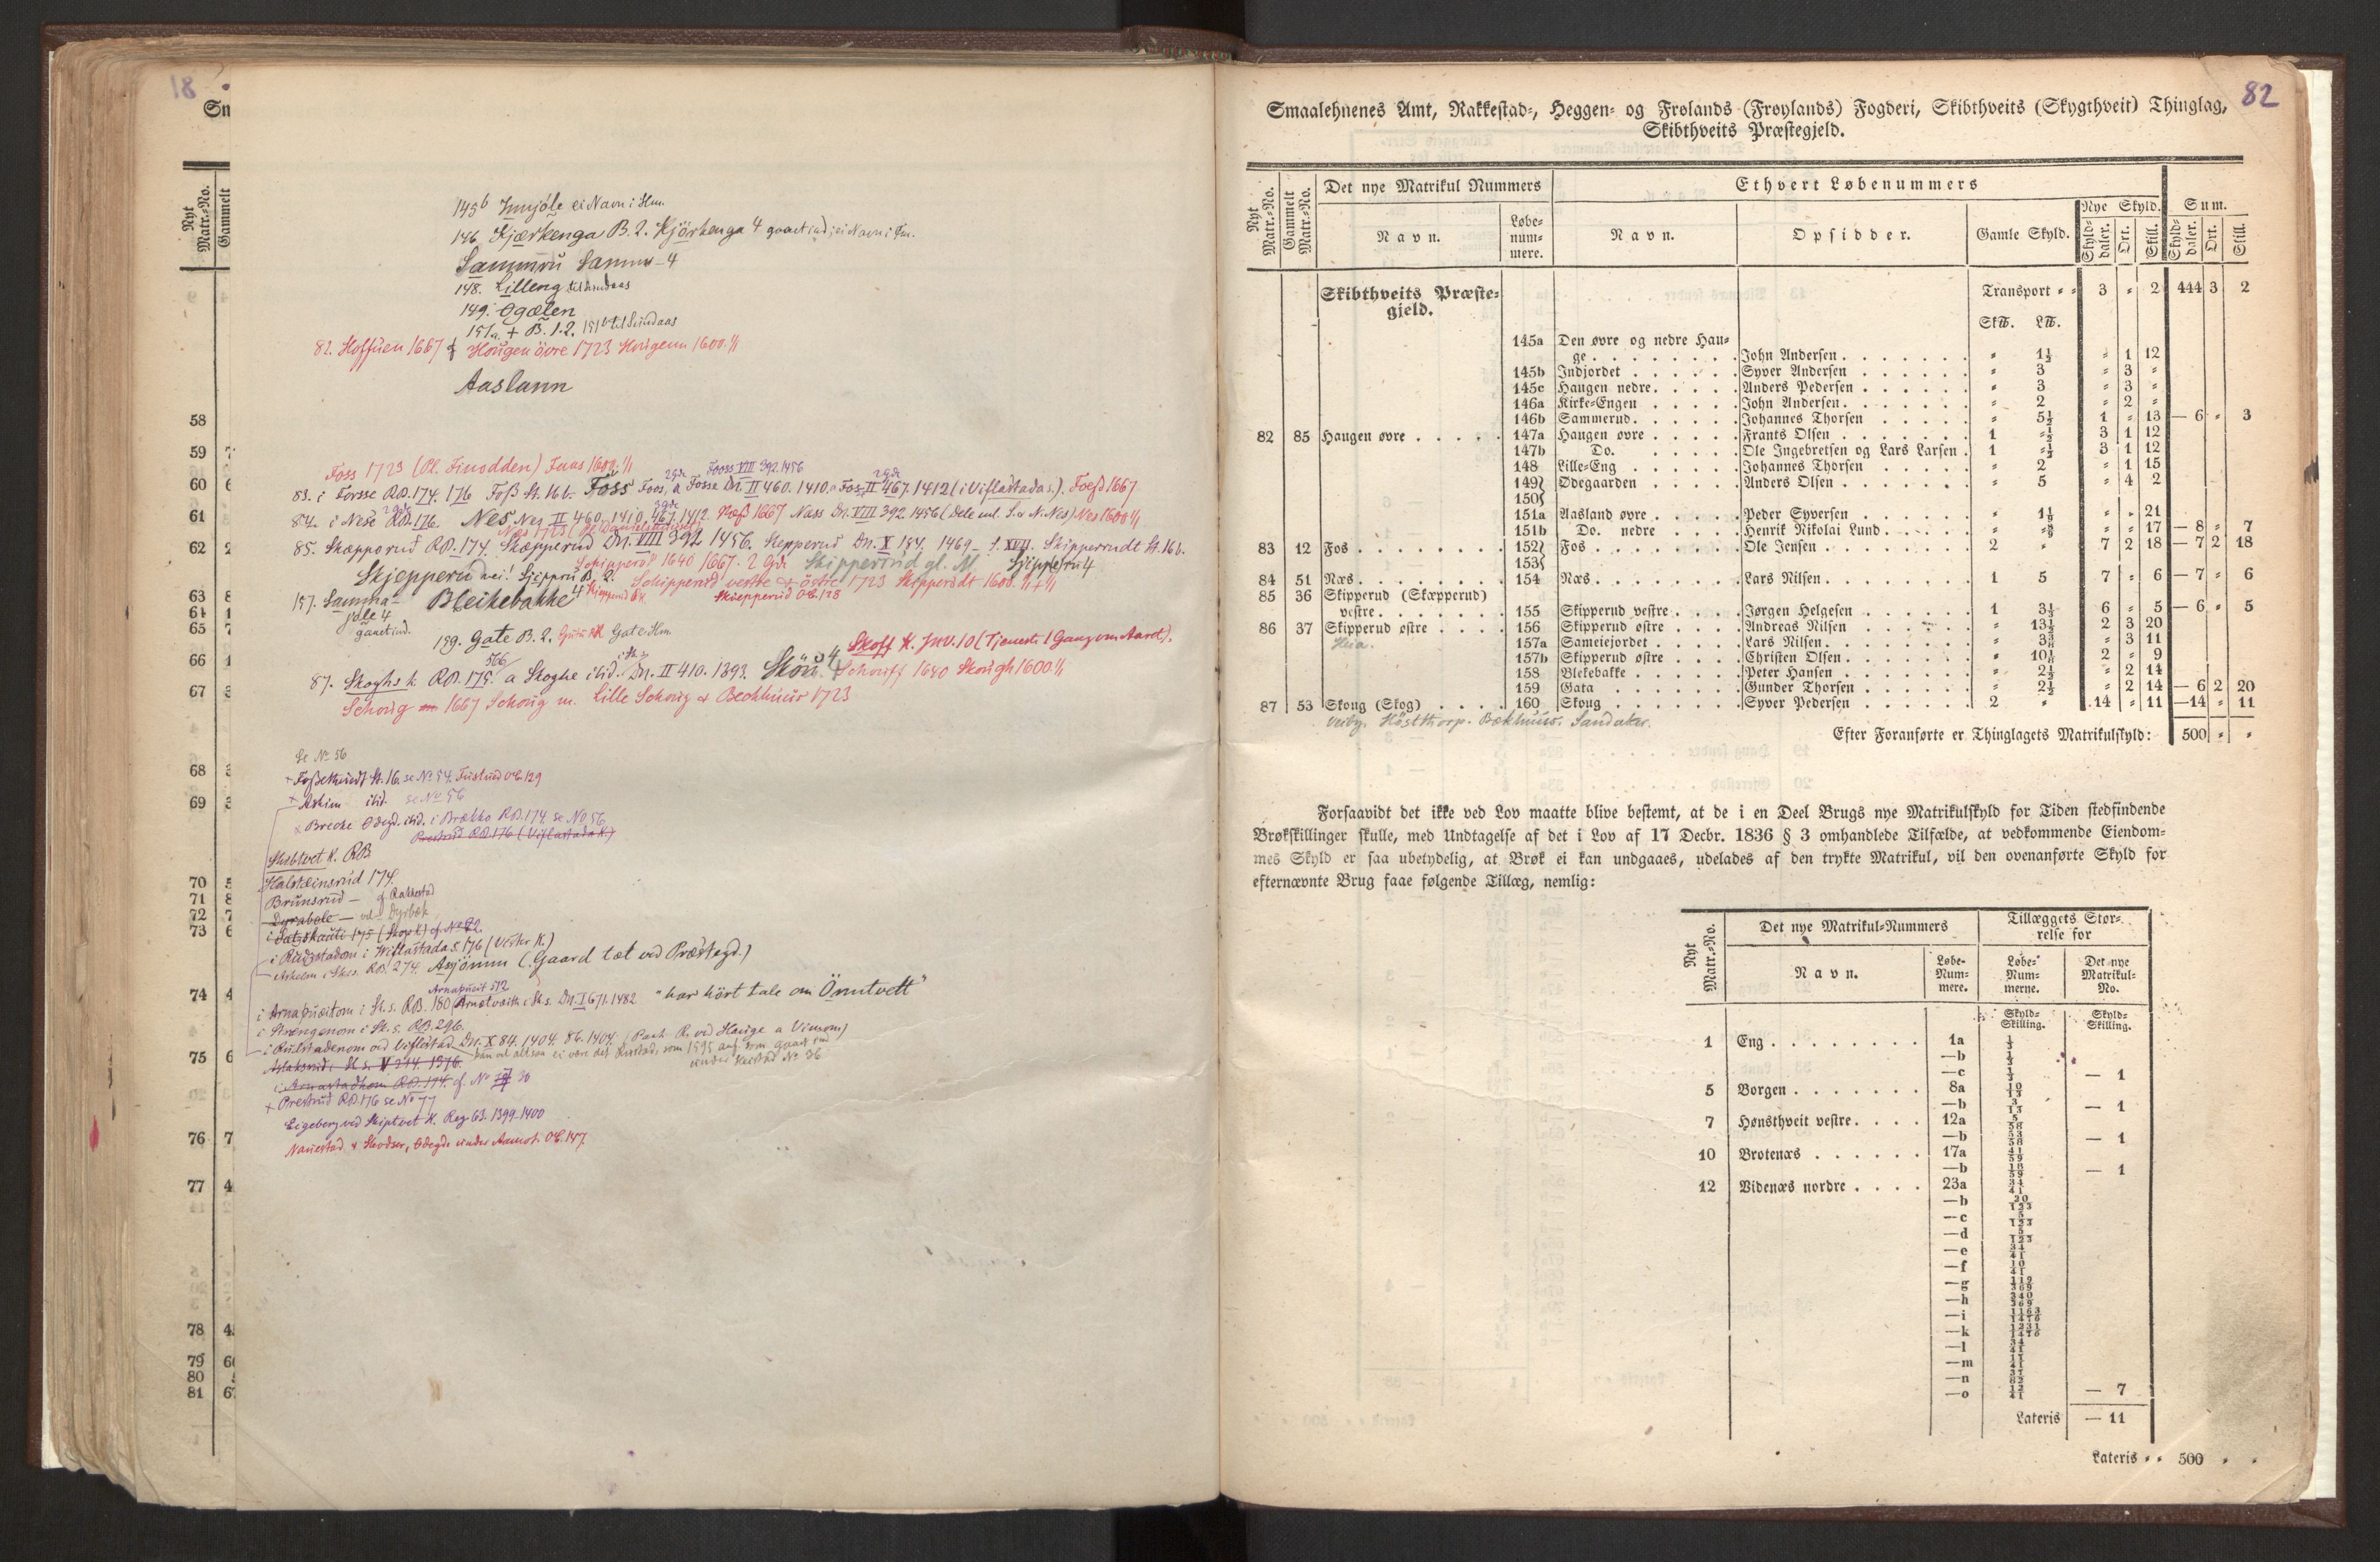 18
Sn
Nyt Matr.-No.
Gammelt
145b Innjöle ei Navn i Hm.
146. Kjærkenga B. 2. Kjörkenga 4
Sammru
148. Lilleng
149. Ogælen
151a + B. 1.2. 151b til Lundaas
82. Hoffuen 1667 Hougen övre 1723 Hougenn 1600. 1/1
Aaslann
58
59 7
60 6
61
62 2
63 8
64 1
65 7
66 1
67 3
68 3
69 3
70 5
71 8
72 7
73 6
74 4
75 6
76 7
77 4
78 4
79 6
80
81 6
Foss 1723 (Pl. Finodden) Fuas 1600. 1/1
Fooss VIII 392. 1456
83. i Forsse RB. 174. 176 Foß St. 16 b. Foss Foos, a Fosse Dn. II 460. 1410. a Fos II 467. 1412 (i Viflastada s.). Foeß 1667
84. i Nese RB. 176. Nes Nes II 460. 1410. 467. 1412. Næß 1667 Nass Dn. VIII 392. 1456 (Dele ml. S. & N. Nes) Nes 1600 1/1
85. Skæpporud RB. 174. Skæpperud Dn. VIII 392 1456. Skepperud Dn. X 184. 1469 - f. XVII. Skipperrudt St. 16 b.
1640 1667. 2 Gde Skipperrud gl. M.
Skjepperu nei! Sjeppru B. 2. Sjippe/ru 4
Schipperud vestre & östre 1723 Skipperudt 1600. 1/1 + 1/1
Skiepperud OE. 128
157. Samma-
jole 4
Bleikebakke 4
159. Gate B. 2. Gate Hm.
Skoff K. Jnv. 10 (Tjeneste 1 Gang om Aaret).
87. Skoghs k. RB. 175. a Skoghe ibid. Dn. II 410. 1393. Skou 4 Schouff 1640 Skough 1600 1/1
Schoug 1667 Schoug m. Lille Schoug & Beckhuus 1723
Se No 56
+ Foßetkiudt St. 16. se No 54. Fustued OE. 129
+ Askim ibid. se No 56
x Breche Ödegd. ibid. i Brækko RB. 174. se No 56
Prestrud RB. 176 (Viflastada K.)
Skibtvet K. RB.
Halsteinsrud 174.
Brunsrud — cf. Rakkestad
Dyrabole — vel Dyrbæk
175 (Skop k) cf. No 82
i Rudzstadom i Wiflastada s. 176 (Vestr K.)
Askeim i Skes. RB. 274. Asjömm (Gaard tæt ved Præstegd.)
Arnapueit 512
i Arnapuæitom i Sk. s. RB. 180 Arnætvæith i Sk s. Dn. I 671. 1482 "har hört tale om Önntvett"
i Strengenom i Sk. s. RB. 296.
i Rulstadenom vid Viflestad Dn. X 84. 1404. 86. 1404. (Pach R. ved Hauge a Vimom)
kan vel altsaa ei være det Rustad, som 1595 anf. som Gaard
under Keistad No 36
Aslaksrud i Sk s. V 274. 1376.
i Arnastadhom RB. 174. cf. No 30
+ Prestrud RB. 176 se No 77
Eigeberg ved Skiptvet K. Reg 63. 1399-1400
Navestad & Skodser, Ödegde under Aamot. OE. 147.
82
Smaalehnenes Amt, Rakkestad-, Heggen- og Frølands (Frøylands) Fogderi, Skibthveits (Skygthveit) Thinglag,
Skibthveits Præstegjeld.
Nyt Matr.-No. Gammelt Matr.-No. Det nye Matrikul Nummers Ethvert Løbenummers
Navn. Løbe-nummere. Navn. Opsidder. Gamle Skyld. Nye Skyld. Sum.
Skyld-daler. Ort. Skill. Skyld-daler. Ort. Skill.
Skibthveits Præste-gjeld. Transport 3 " 2 444 3 2
Sk℔. L℔.
145a Den øvre og nedre Hau-
ge . . . John Andersen . . . " 1½ " 1 12
145b Indjordet . . . Syver Andersen . . . " 3 " 3 "
145c Haugen nedre . . . Anders Pedersen . . . " 3 " 3 "
146a Kirke-Engen . . . John Andersen . . . " 2 " 2 "
146b Sammerud . . . Johannes Thorsen . . . " 5½ 1 " 13 — 6 " 3
82 85 Haugen øvre . . . 147a Haugen øvre . . . Frants Olsen . . . 1 "½ 3 1 12
147b Do. Ole Ingebretsen og Lars Larsen . 1 "½ 3 1 12
148 Lille-Eng . . . Johannes Thorsen . . . " 2 " 1 15
149} Ødegaarden . . . Anders Olsen . . . " 5 " 4 2
150}
151a Aasland øvre . . . Peder Syversen . . . " 1 1/9 " " 21
151b Do. nedre . . . Henrik Nikolai Lund . . . " "8/9 " " 17 — 8 " 7
83 12 Fos . . . 152} Fos . . . Ole Jensen . . . 2 " 7 2 18 — 7 2 18
153}
84 51 Næs . . . 154 Næs . . . Lars Nilsen . . . 1 5 7 " 6 — 7 " 6
85 36 Skipperud (Skæpperud)
vestre . . . 155 Skipperud vestre . . . Jørgen Helgesen . . . 1 3½ 6 " 5 — 6 " 5
86 37 Skipperud østre . . . 156 Skipperud østre . . . Andreas Nilsen . . . " 13½ 2 3 20
Heia. 157a Sameiejordet . . . Lars Nilsen . . . " 3 3/8 " 3 11
157b Skipperud østre . . . Christen Olsen . . . " 10 1/8 2 " 9
158 Blekebakke . . . Peter Hansen . . . " 2½ " 2 14
159 Gata . . . Gunder Thorsen . . . " 2½ " 2 14 — 6 2 20
87 53 Skoug (Skog) . . . 160 Skoug . . . Syver Pedersen . . . 2 " 14 " 11 — 14 " 11
Høstthorp. Bækhuus. Sandaker.
Efter Foranførte er Thinglagets Matrikulskyld: 500 " "
Forsaavidt det ikke ved Lov maatte blive bestemt, at de i en Deel Brugs nye Matrikulskyld for Tiden stedfindende
Brøkskillinger skulle, med Undtagelse af det i Lov af 17 Decbr. 1836 § 3 omhandlede Tilfælde, at vedkommende Eiendom-
mes Skyld er saa ubetydelig, at Brøk ei kan undgaaes, udelades af den trykte Matrikul, vil den ovenanførte Skyld for
efternævnte Brug faae følgende Tillæg, nemlig:
Nyt Matr.-No. Det nye Matrikul-Nummers Tillæggets Stør-relse for
Navn. Løbe-Num-mere. Løbe-Num-merne. Det nye Matrikul-No.
Skyld-Skilling. Skyld-Skilling.
1 Eng . . . 1a 1/3
—b 1/3
—c 1/3 — 1
5 Borgen . . . 8a 10/13
—b 3/13 — 1
7 Hønsthveit vestre . . . 12a 5/58
—b 53/58 — 1
10 Brotenæs . . . 17a 41/59
—b 18/59 — 1
12 Videnæs nordre . . . 23a 34/41
—b 20/123
—c 5/123
—d 5/123
—e 34/41
—f 10/41
—g 119/369
—h 340/369
—i 1163/1476
—k 1231/1476
—l 34/41
—m 11/41
—n 37/82
—o 12/41 — 7
Lateris — 11
Lateris " " 500 " "